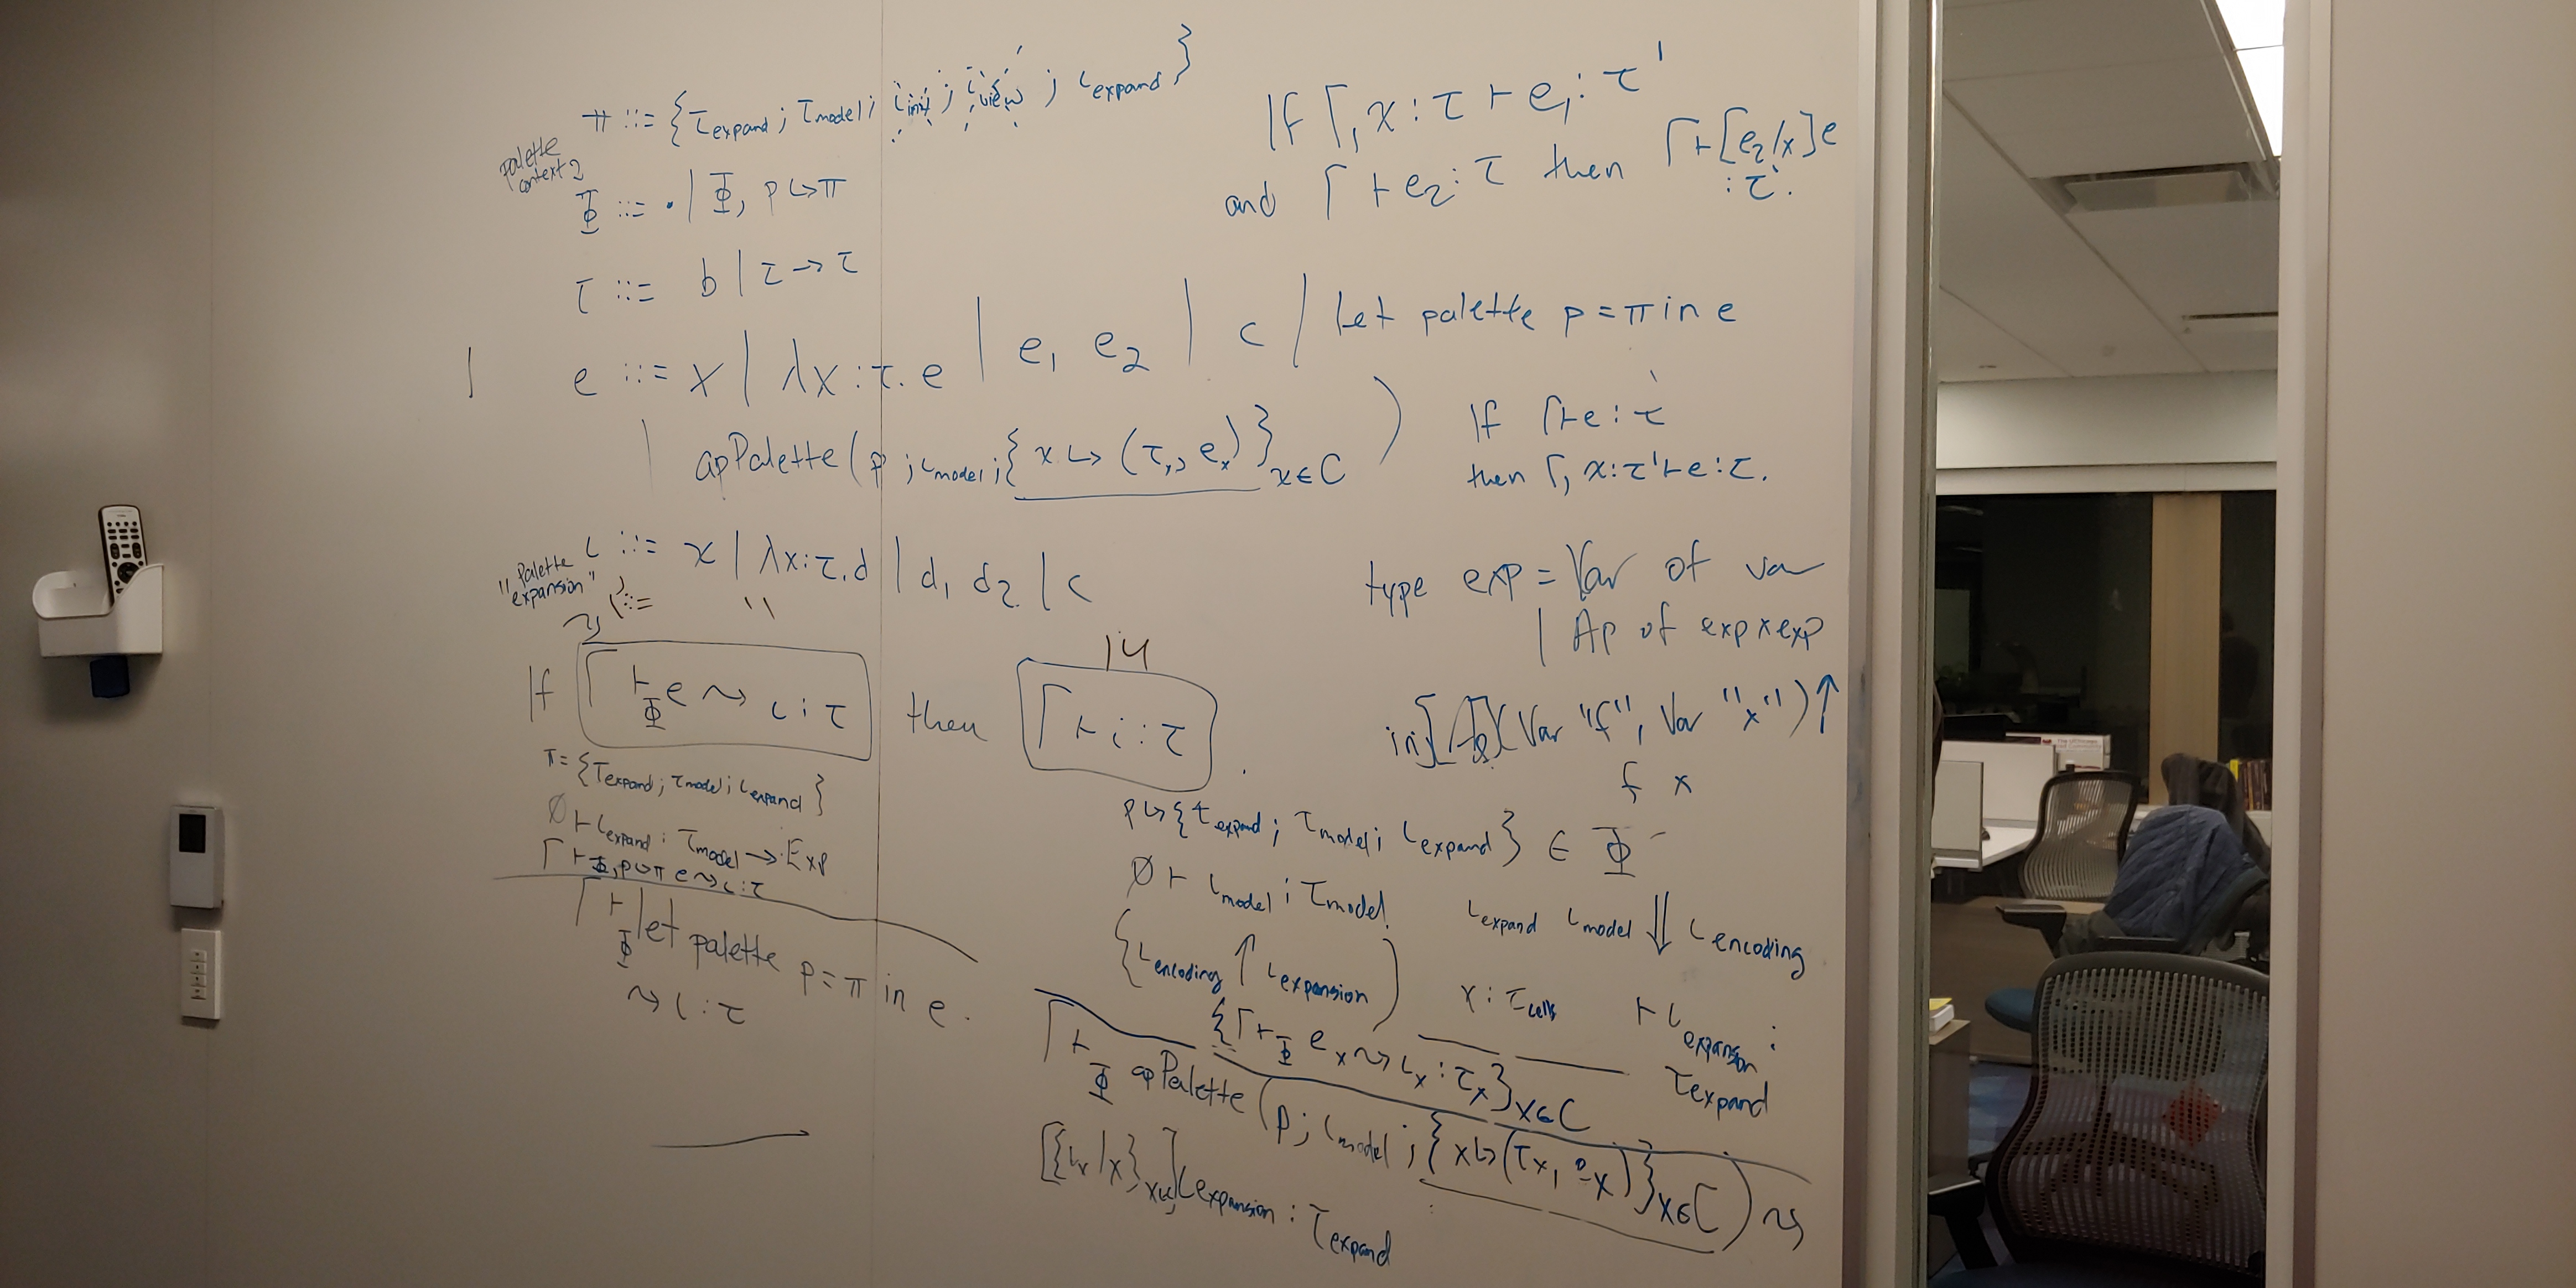 π ::= {τexpand ; τmodel ; ιinit ; ιview ; ιexpand}
palette
context
Φ ::= · | Φ, p ↪ π
τ ::= b | τ → τ
e ::= x | λx:τ.e | e1 e2 | c | let palette p = π in e
| apPalette(p ; ιmodel ; {x ↪ (τx, ex)}x∈C)
"Palette
expansion"
ι ::= x | λx:τ.d | d1 d2 | c
::= "
If Γ ⊢Φ e ⇝ ι : τ then Γ ⊢ i : τ .
π = {τexpand ; τmodel ; ιexpand}
∅ ⊢ ιexpand : τmodel → Exp
Γ ⊢Φ, p↪π e ⇝ ι : τ
Γ ⊢Φ let palette p = π in e.
⇝ ι : τ
If Γ, x : τ ⊢ e1 : τ'
and Γ ⊢ e2 : τ then Γ ⊢ [e2/x]e
: τ'.
If Γ ⊢ e : τ
then Γ, x : τ' ⊢ e : τ.
type exp = Var of var
| Ap of exp x exp
inj[Ap](Var "f", Var "x") ↑
f x
p ↪ {τexpand ; τmodel ; ιexpand} ∈ Φ
∅ ⊢ ιmodel : τmodel ιexpand ιmodel ⇓ ιencoding
ιencoding ↑ ιexpansion x : τcells ⊢ ιexpansion : τexpand
{Γ ⊢Φ ex ⇝ ιx : τx}x∈C
Γ ⊢Φ apPalette(p ; ιmodel ; {x ↪ (τx, ex)}x∈C) ⇝
[{ιx/x}x∈C]ιexpansion : τexpand